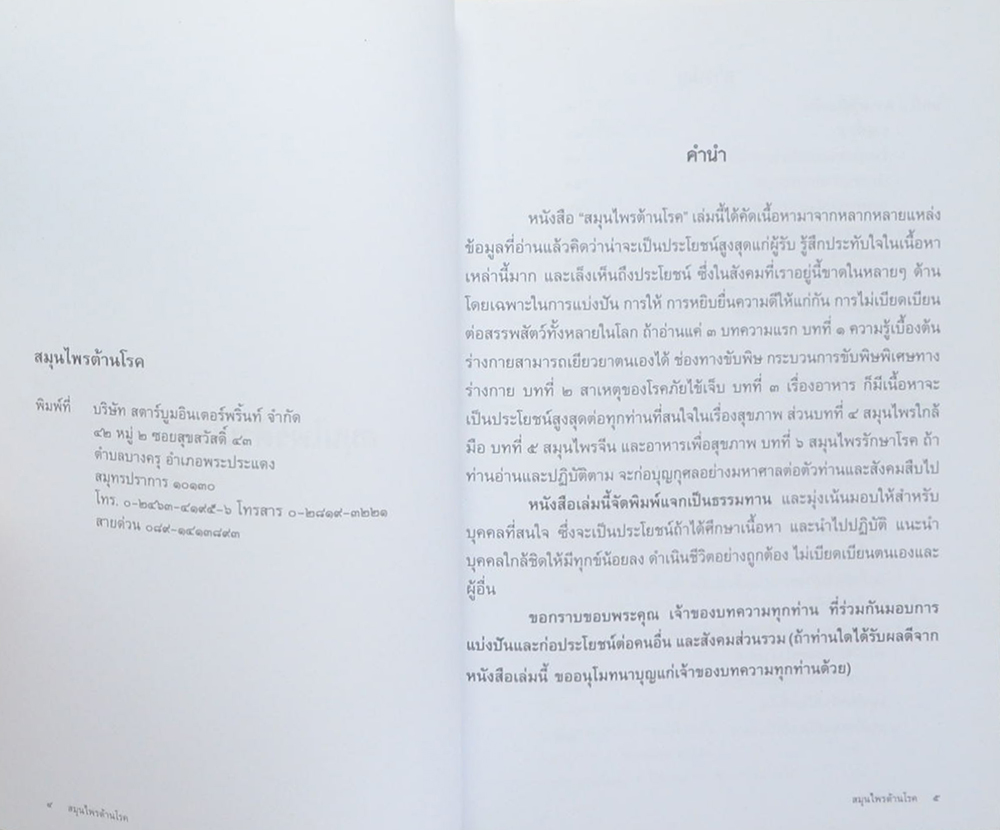 สมุนไพรต้านโรค
พิมพ์ที่ บริษัท สตาร์บูมอินเตอร์พริ้นท์ จำกัด
๔๒ หมู่ ๒ ซอยสุขสวัสดิ์ ๔๓
ตำบลบางครุ อำเภอพระประแดง
สมุทรปราการ ๑๐๑๓๐
โทร. ๐-๒๔๖๓-๔๑๙๕-๖ โทรสาร ๐-๒๘๑๙-๓๒๒๑
สายด่วน ๐๘๙-๑๔๑๓๘๙๓
๔ สมุนไพรต้านโรค
คำนำ
หนังสือ “สมุนไพรต้านโรค” เล่มนี้ได้คัดเนื้อหามาจากหลากหลายแหล่ง
ข้อมูลที่อ่านแล้วคิดว่าน่าจะเป็นประโยชน์สูงสุดแก่ผู้รับ รู้สึกประทับใจในเนื้อหา
เหล่านี้มาก และเล็งเห็นถึงประโยชน์ ซึ่งในสังคมที่เราอยู่นี้ขาดในหลายๆ ด้าน
โดยเฉพาะในการแบ่งปัน การให้ การหยิบยื่นความดีให้แก่กัน การไม่เบียดเบียน
ต่อสรรพสัตว์ทั้งหลายในโลก ถ้าอ่านแค่ ๓ บทความแรก บทที่ ๑ ความรู้เบื้องต้น
ร่างกายสามารถเยียวยาตนเองได้ ช่องทางขับพิษ กระบวนการขับพิษพิเศษทาง
ร่างกาย บทที่ ๒ สาเหตุของโรคภัยไข้เจ็บ บทที่ ๓ เรื่องอาหาร ก็มีเนื้อหาจะ
เป็นประโยชน์สูงสุดต่อทุกท่านที่สนใจในเรื่องสุขภาพ ส่วนบทที่ ๔ สมุนไพรใกล้
มือ บทที่ ๕ สมุนไพรจีน และอาหารเพื่อสุขภาพ บทที่ ๖ สมุนไพรรักษาโรค ถ้า
ท่านอ่านและปฏิบัติตาม จะก่อบุญกุศลอย่างมหาศาลต่อตัวท่านและสังคมสืบไป
หนังสือเล่มนี้จัดพิมพ์แจกเป็นธรรมทาน และมุ่งเน้นมอบให้สำหรับ
บุคคลที่สนใจ ซึ่งจะเป็นประโยชน์ถ้าได้ศึกษาเนื้อหา และนำไปปฏิบัติ แนะนำ
บุคคลใกล้ชิดให้มีทุกข์น้อยลง ดำเนินชีวิตอย่างถูกต้อง ไม่เบียดเบียนตนเองและ
ผู้อื่น
ขอกราบขอบพระคุณ เจ้าของบทความทุกท่าน ที่ร่วมกันมอบการ
แบ่งปันและก่อประโยชน์ต่อคนอื่น และสังคมส่วนรวม (ถ้าท่านใดได้รับผลดีจาก
หนังสือเล่มนี้ ขออนุโมทนาบุญแก่เจ้าของบทความทุกท่านด้วย)
สมุนไพรต้านโรค ๕